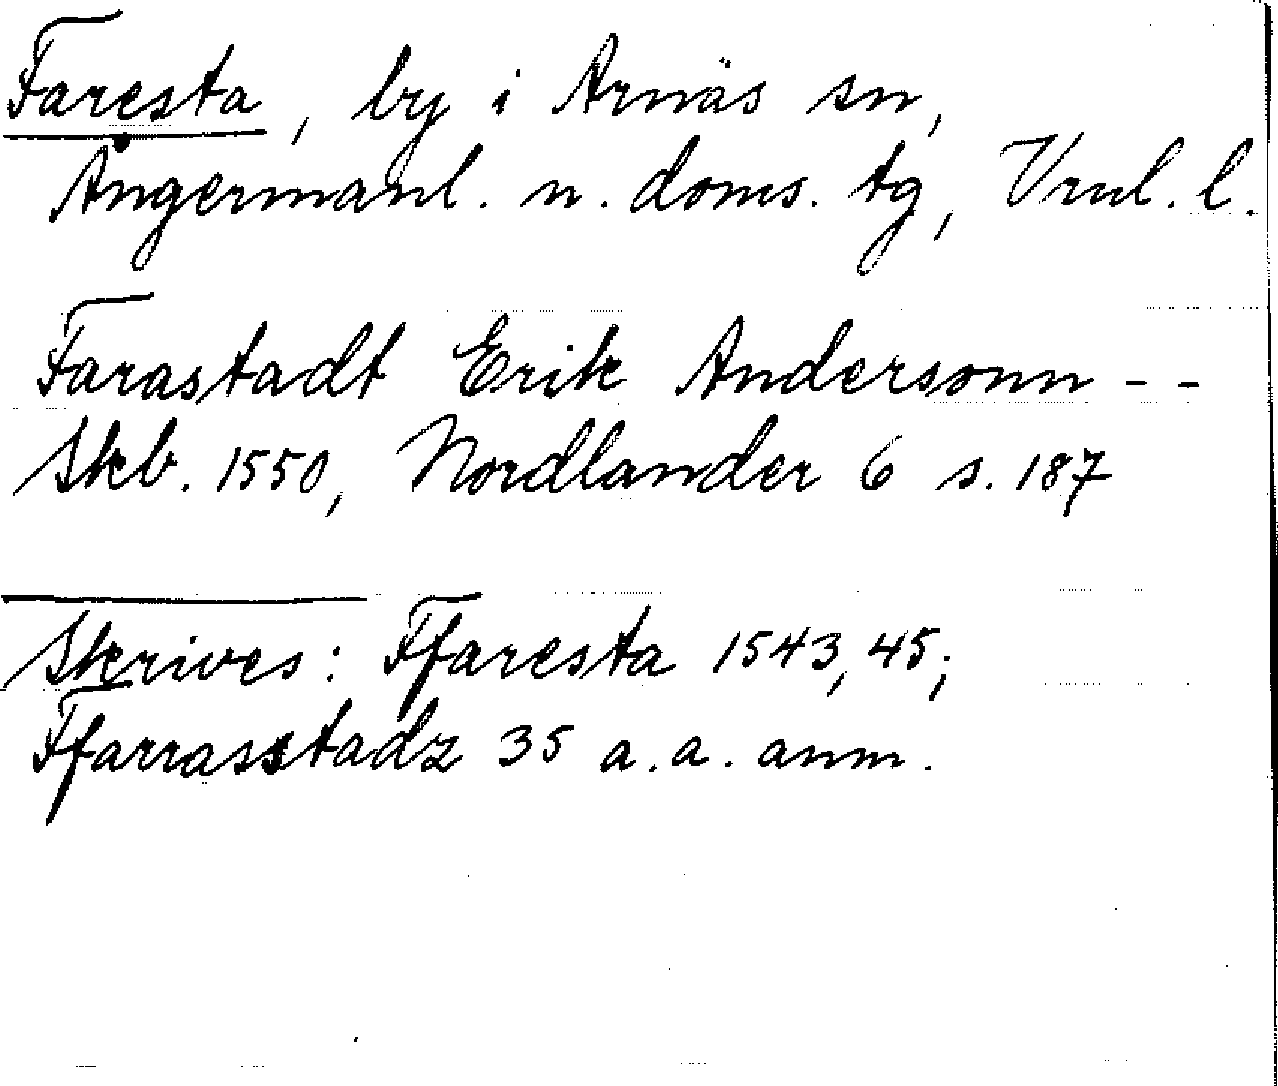 Faresta, by i Arnäs sn,
Ångermanl. n. doms. tg, Vnl. l.
Farastadt Erik Andersonn - -
Skb. 1550, Nordlander 6 s. 187
Skrives: Ffaresta 1543, 45;
Ffarrasstadz 35 a. a. anm.